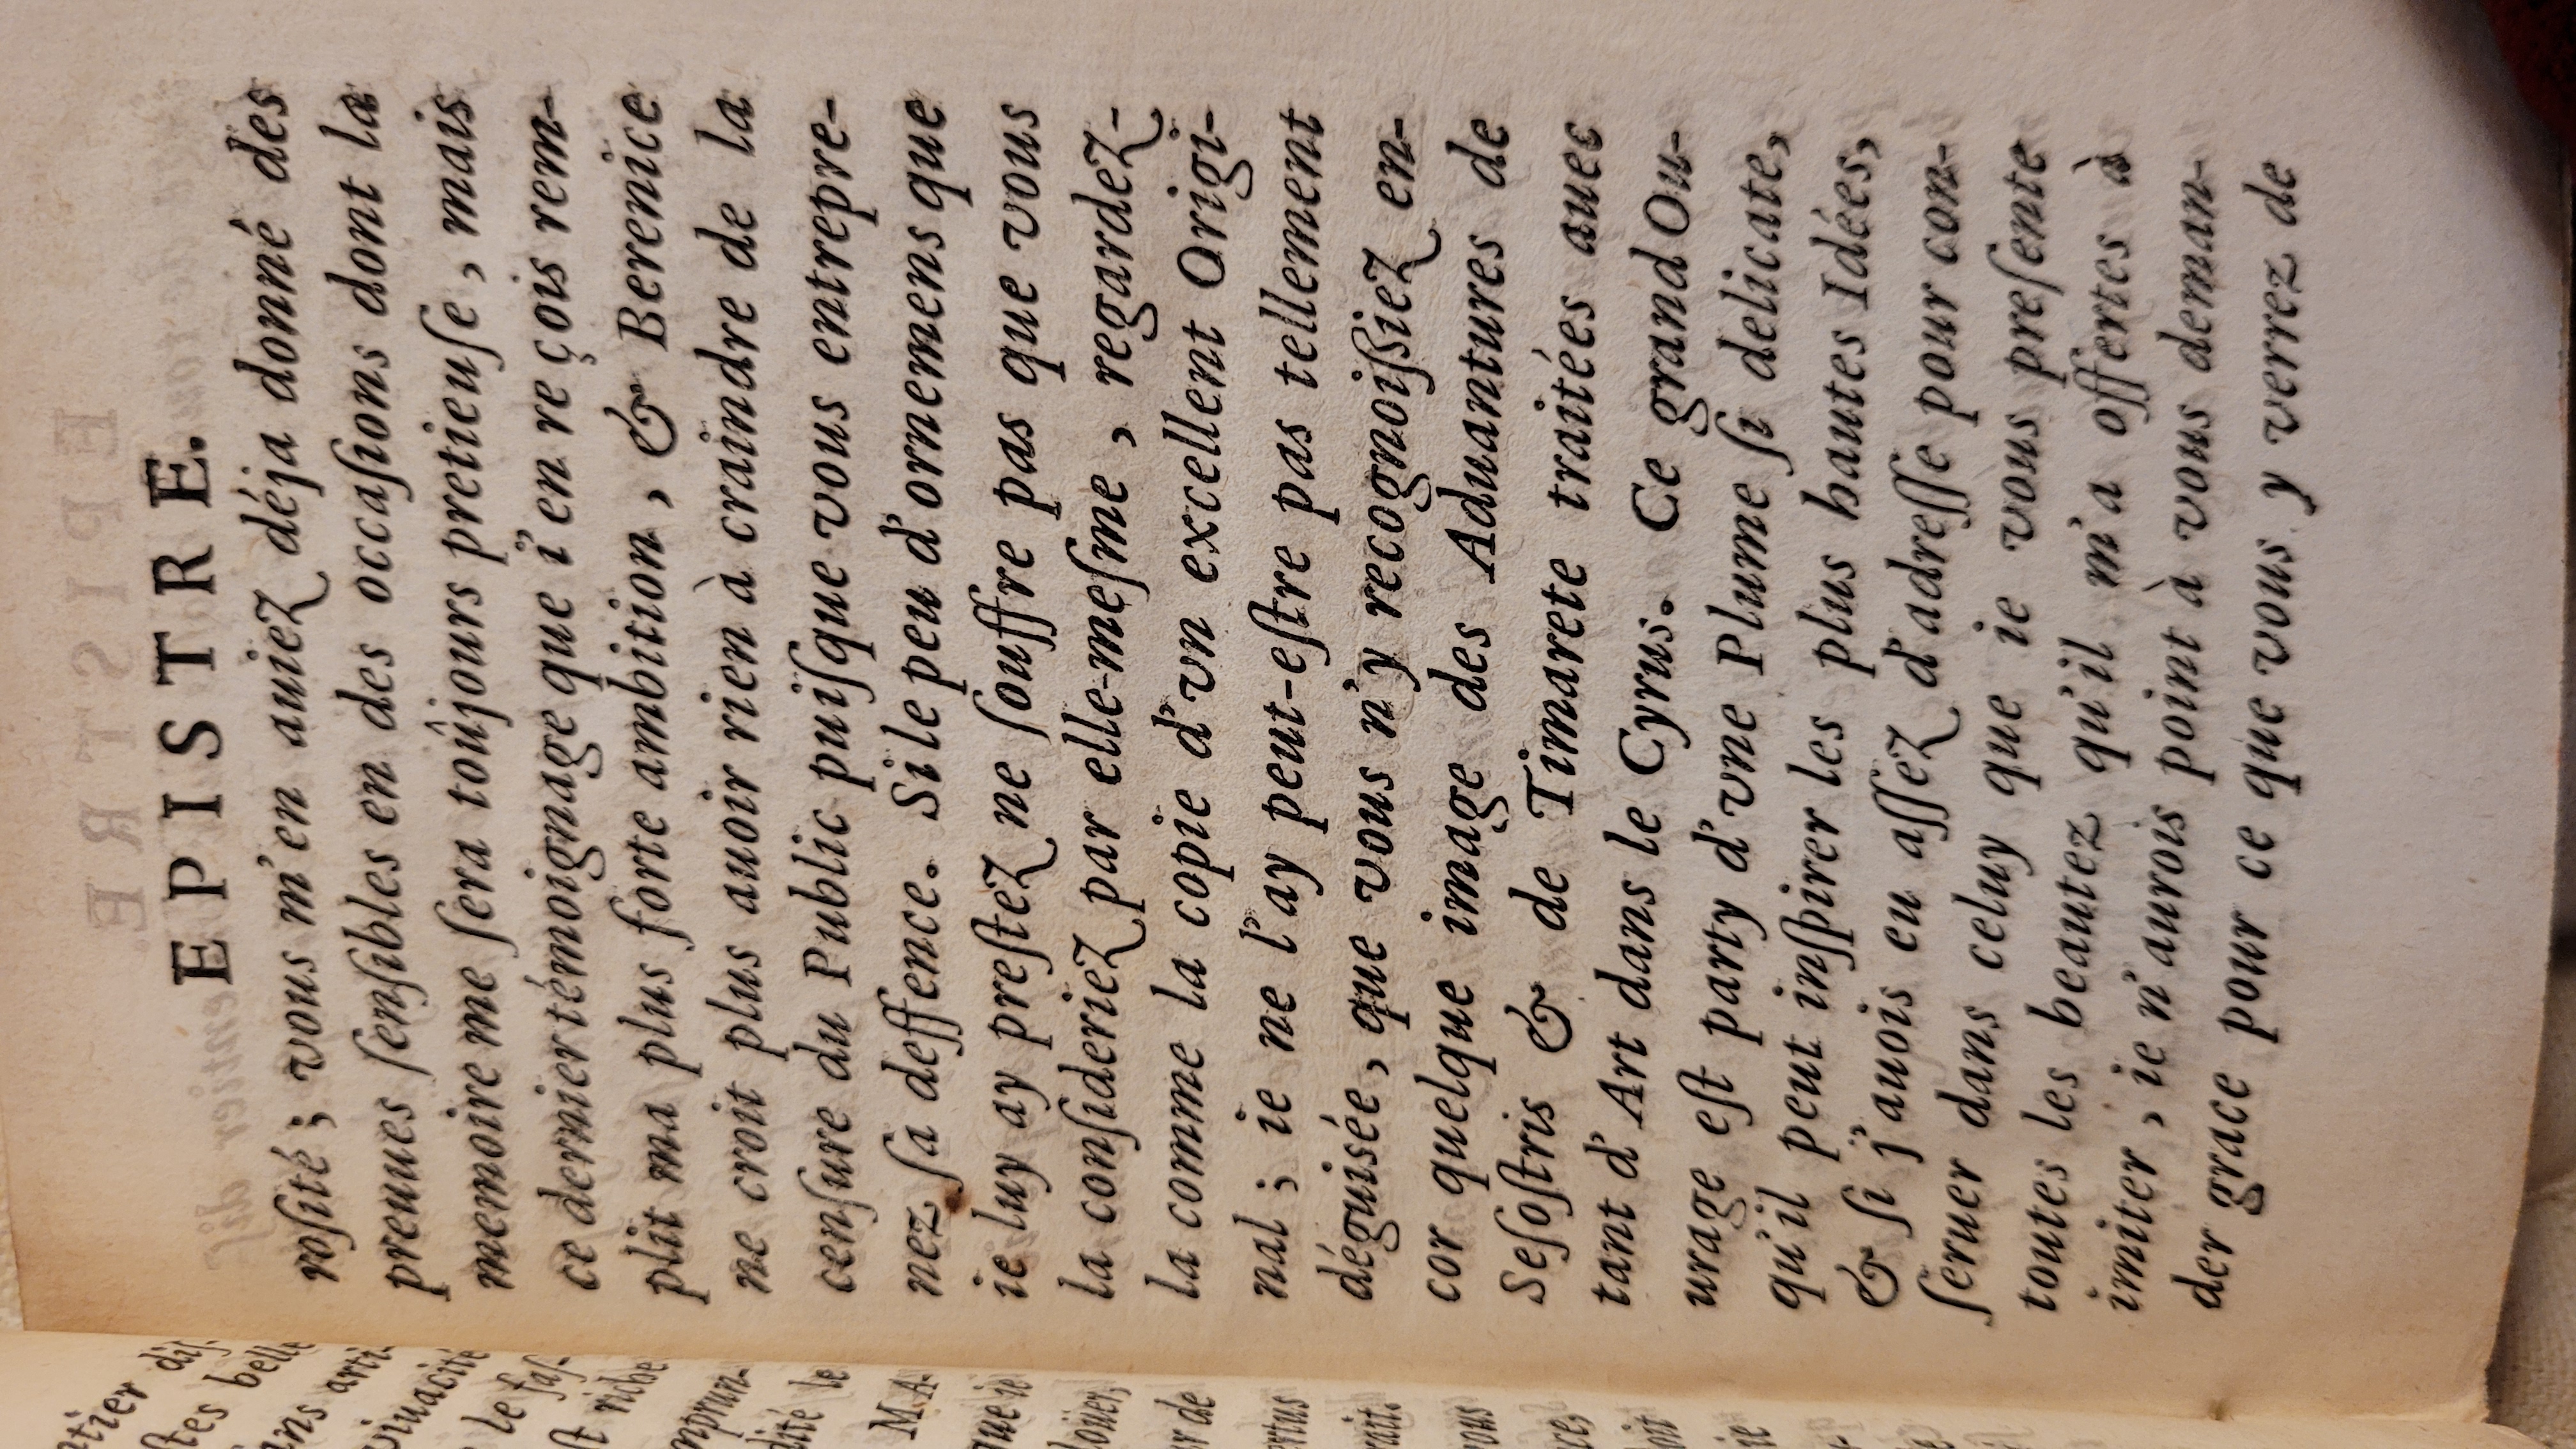 EPISTRE.
rosité; vous m'en auiez déja donné des
preuues ſenſibles en des occaſions dont la
memoire me ſera toûjours pretieuſe, mais
ce dernier témoignage que i'en reçois rem-
plit ma plus forte ambition, & Berenice
ne croit plus auoir rien à craindre de la
cenſure du Public puiſque vous entrepre-
nez ſa deffence. Si le peu d'ornemens que
ie luy ay preſtez ne ſouffre pas que vous
la conſideriez par elle-meſme, regardez-
la comme la copie d'vn excellent Origi-
nal; ie ne l'ay peut-eſtre pas tellement
déguisée, que vous n'y recognoiſſiez en-
cor quelque image des Aduantures de
Seſoſtris & de Timarete traitées auec
tant d'Art dans le Cyrus. Ce grand Ou-
urage eſt party d'vne Plume ſi delicate,
qu'il peut inſpirer les plus hautes Idées,
& ſi j'auois eu aſſez d'adreſſe pour con-
ſeruer dans celuy que ie vous preſente
toutes les beautez qu'il m'a offertes à
imiter, ie n'aurois point à vous deman-
der grace pour ce que vous y verrez de
ntier diſ-
ſtes belle
ns arti-
viuacité
le faſ-
ſt riche
mprun-
dité le
MA-
que ie
loüer,
ur de
ertus
rait.
vous
res,
loit
ie